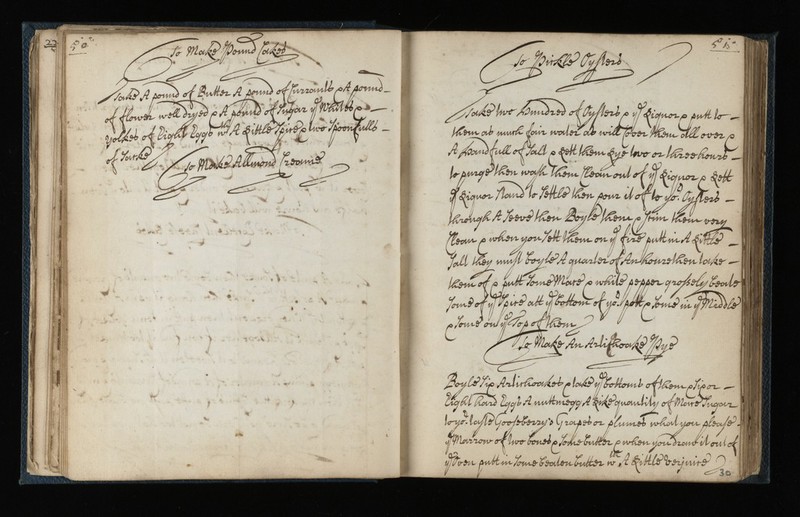 50
To Make Pound Cakes
Take A pound of Butter A pound of Currants & A pound
of flower well dryed & A pound of Sugar ye Whites &
yolkes of Eight Eggs wth A Little Spice & two Spoonfulls
of Sacke
To Make Allmond Creame
51
To Pickle Oysters
Take two Hundred of Oysters & ye Liquor & putt to
them as much fair water as will Cover them all over &
A Handfull of Salt & Lett them Lye two or three hours
to purge then wash them Clean out of ye Liquor & Lett
ye Liquor Stand to Settle then pour it of to yor Oysters
through A Seeve then Boyle them & Scim them very
Clean & when you Sett them on ye fire putt in A Little
Salt they must boyle A quarter of An houre then take
them of & putt Some Mace & white pepper grossely beate
Some of ye Spice att ye bottom of yor pott & Some in ye Middle
& Some on ye Top of them
To Make An Artichoake Pye
Boyle Six Artichoakes & take ye bottoms of them & Six or
Eight hard Eggs A nuttmegg A Like quantity of Mace Sugar
to yor taste Gooseberry's Grapes or plumes what you please
ye Marrow of two bones & Some butter & when you draw it out of
ye Oven putt in Some beaten butter wth A Little Verjuice
30